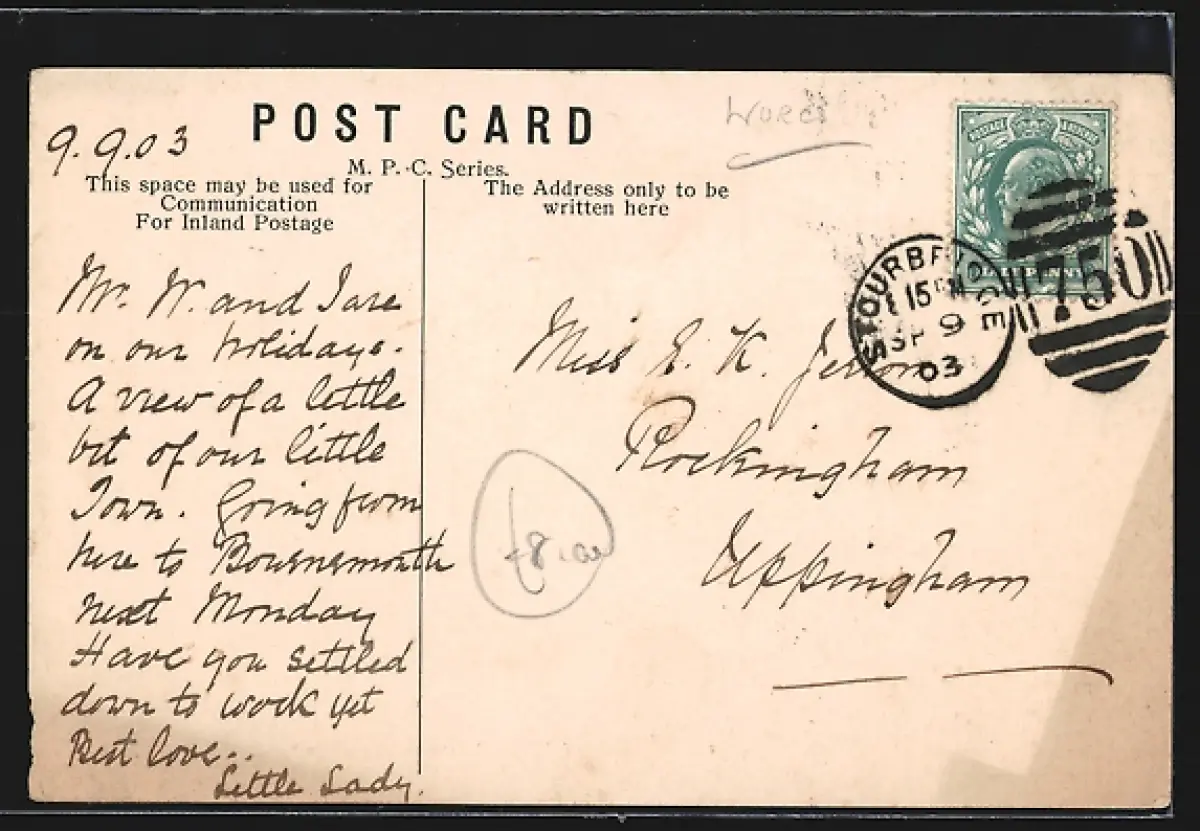 9.9.03
POST CARD
WORCS
M. P. C. Series.
This space may be used for
Communication
For Inland Postage
The Address only to be
written here
HALFPENNY
STOURBRIDGE
15 PM
SP 9
03
750
Mr. W. and I are
on our holidays.
A view of a little
bit of our little
Town. Going from
here to Bournemouth
next Monday
Have you settled
down to work yet
Best love..
Little Lady.
Miss E. K.
Rockingham
Uppingham
£8.00